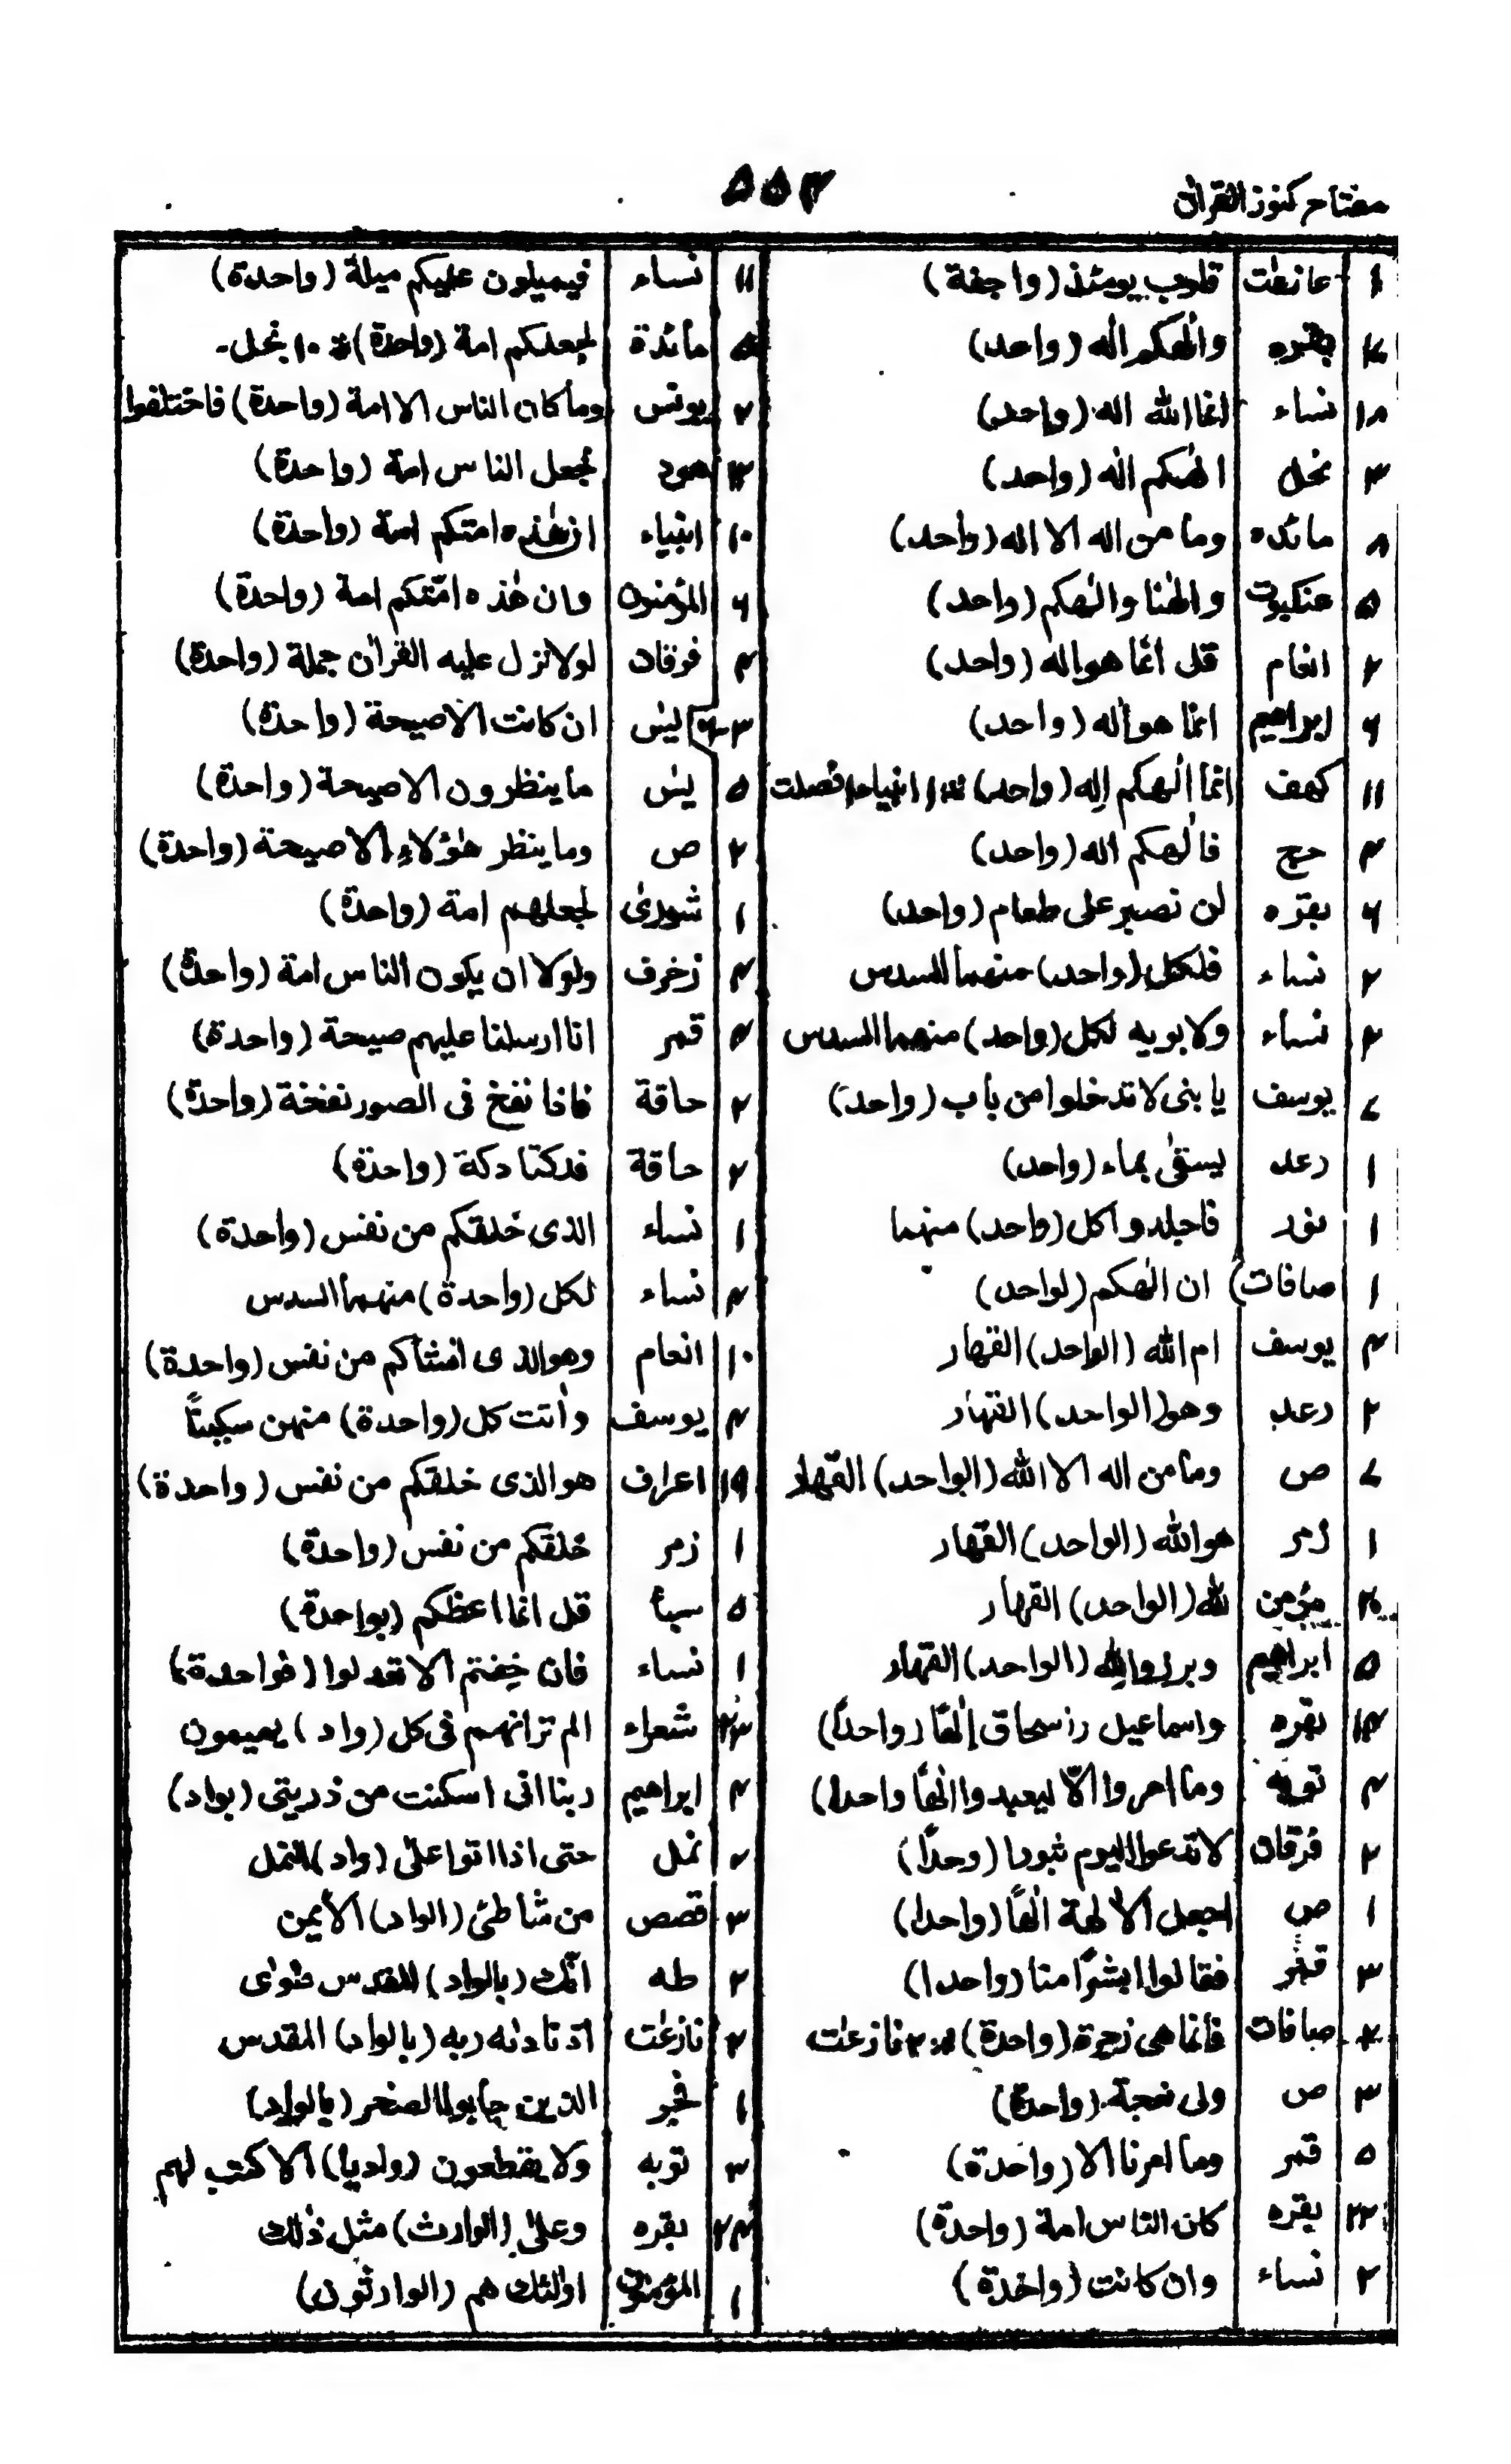 مفتاح كنوز القرآن
۵۵۴
نازعٰت قلوب يومئذ (واجفة)
بقره والٰهكم الٰه (واحد)
۱۸ نساء انما الله اله (واحد)
۳ نحل الٰهكم اله (واحد)
مائده وما من اله الا اله (واحد)
۵ عنكبوت والٰهنا والٰهكم (واحد)
۲ انعام قل انما هو اله (واحد)
۶ ابراهيم انما هو اله (واحد)
۱۱ كهف انما الٰهكم اله (واحد) انبياء فصلت
حج فالٰهكم اله (واحد)
۶ بقره لن نصبر على طعام (واحد)
۲ نساء فلكل (واحد) منهما السدس
۲ نساء ولابويه لكل (واحد) منهما السدس
يوسف يا بنى لا تدخلوا من باب (واحد)
۱ رعد يسقٰى بماء (واحد)
۱ نور فاجلدوا كل (واحد) منهما
۱ صافات ان الٰهكم (لواحد)
يوسف ام الله (الواحد) القهار
۲ رعد وهو (الواحد) القهار
ص وما من اله الا الله (الواحد) القهار
۱ زمر هو الله (الواحد) القهار
مؤمن لله (الواحد) القهار
۵ ابراهيم وبرزوا لله (الواحد) القهار
بقره واسماعيل واسحاق الٰهًا (واحدًا)
توبه وما امروا الّا ليعبدوا الٰهًا واحدا)
۲ فرقان لا تدعوا اليوم ثبورا (وحدًا)
۱ ص اجعل الاٰلهة الٰهًا (واحدا)
۳ قمر فقالوا ابشرًا منا (واحدا)
صافات فانما هى زجرة (واحدة) نازعٰت
۳ ص ولى نعجة (واحدة)
۵ قمر وما امرنا الا (واحدة)
بقره كان الناس امة (واحدة)
۲ نساء وان كانت (واحدة)
۱۱ نساء فيميلون عليكم ميلة (واحدة)
مائدة لجعلكم امة (واحدة) ۱۰ نحل-
۲ يونس وما كان الناس الا امة (واحدة) فاختلفوا
هود لجعل الناس امة (واحدة)
۱۰ انبياء ان هٰذه امتكم امة (واحدة)
المؤمنون وان هٰذه امّتكم امة (واحدة)
فرقان لولا نزل عليه القرآن جملة (واحدة)
يٰس ان كانت الا صيحة (واحدة)
۵ يٰس ما ينظرون الا صيحة (واحدة)
۲ ص وما ينظر هٰؤلاء الا صيحة (واحدة)
۱ شورىٰ لجعلهم امة (واحدة)
زخرف ولولا ان يكون الناس امة (واحدة)
قمر انا ارسلنا عليهم صيحة (واحدة)
۲ حاقة فاذا نفخ فى الصور نفخة (واحدة)
۲ حاقة فدكتا دكة (واحدة)
۱ نساء الذى خلقكم من نفس (واحدة)
نساء لكل (واحدة) منهما السدس
۱۰ انعام وهو الذى انشأكم من نفس (واحدة)
يوسف واٰتت كل (واحدة) منهن سكينًا
اعراف هو الذى خلقكم من نفس (واحدة)
۱ زمر خلقكم من نفس (واحدة)
۵ سبأ قل انما اعظكم (بواحدة)
۱ نساء فان خفتم الا تعدلوا (فواحدة)
شعراء الم تر انهم فى كل (واد) يهيمون
ابراهيم ربنا انى اسكنت من ذريتى (بواد)
۲ نمل حتى اذا اتوا علىٰ (واد) النمل
۳ قصص من شاطئ (الواد) الأيمن
۲ طه انّك (بالواد) المقدس طوٰى
نازعٰت اذ نادٰىه ربه (بالواد) المقدس
۱ فجر الذين جابوا الصخر (بالواد)
۳ توبه ولا يقطعون (واديا) الا كتب لهم
بقره وعلىٰ (الوارث) مثل ذٰلك
۱ المؤمنون اولٰئك هم (الوارثون)